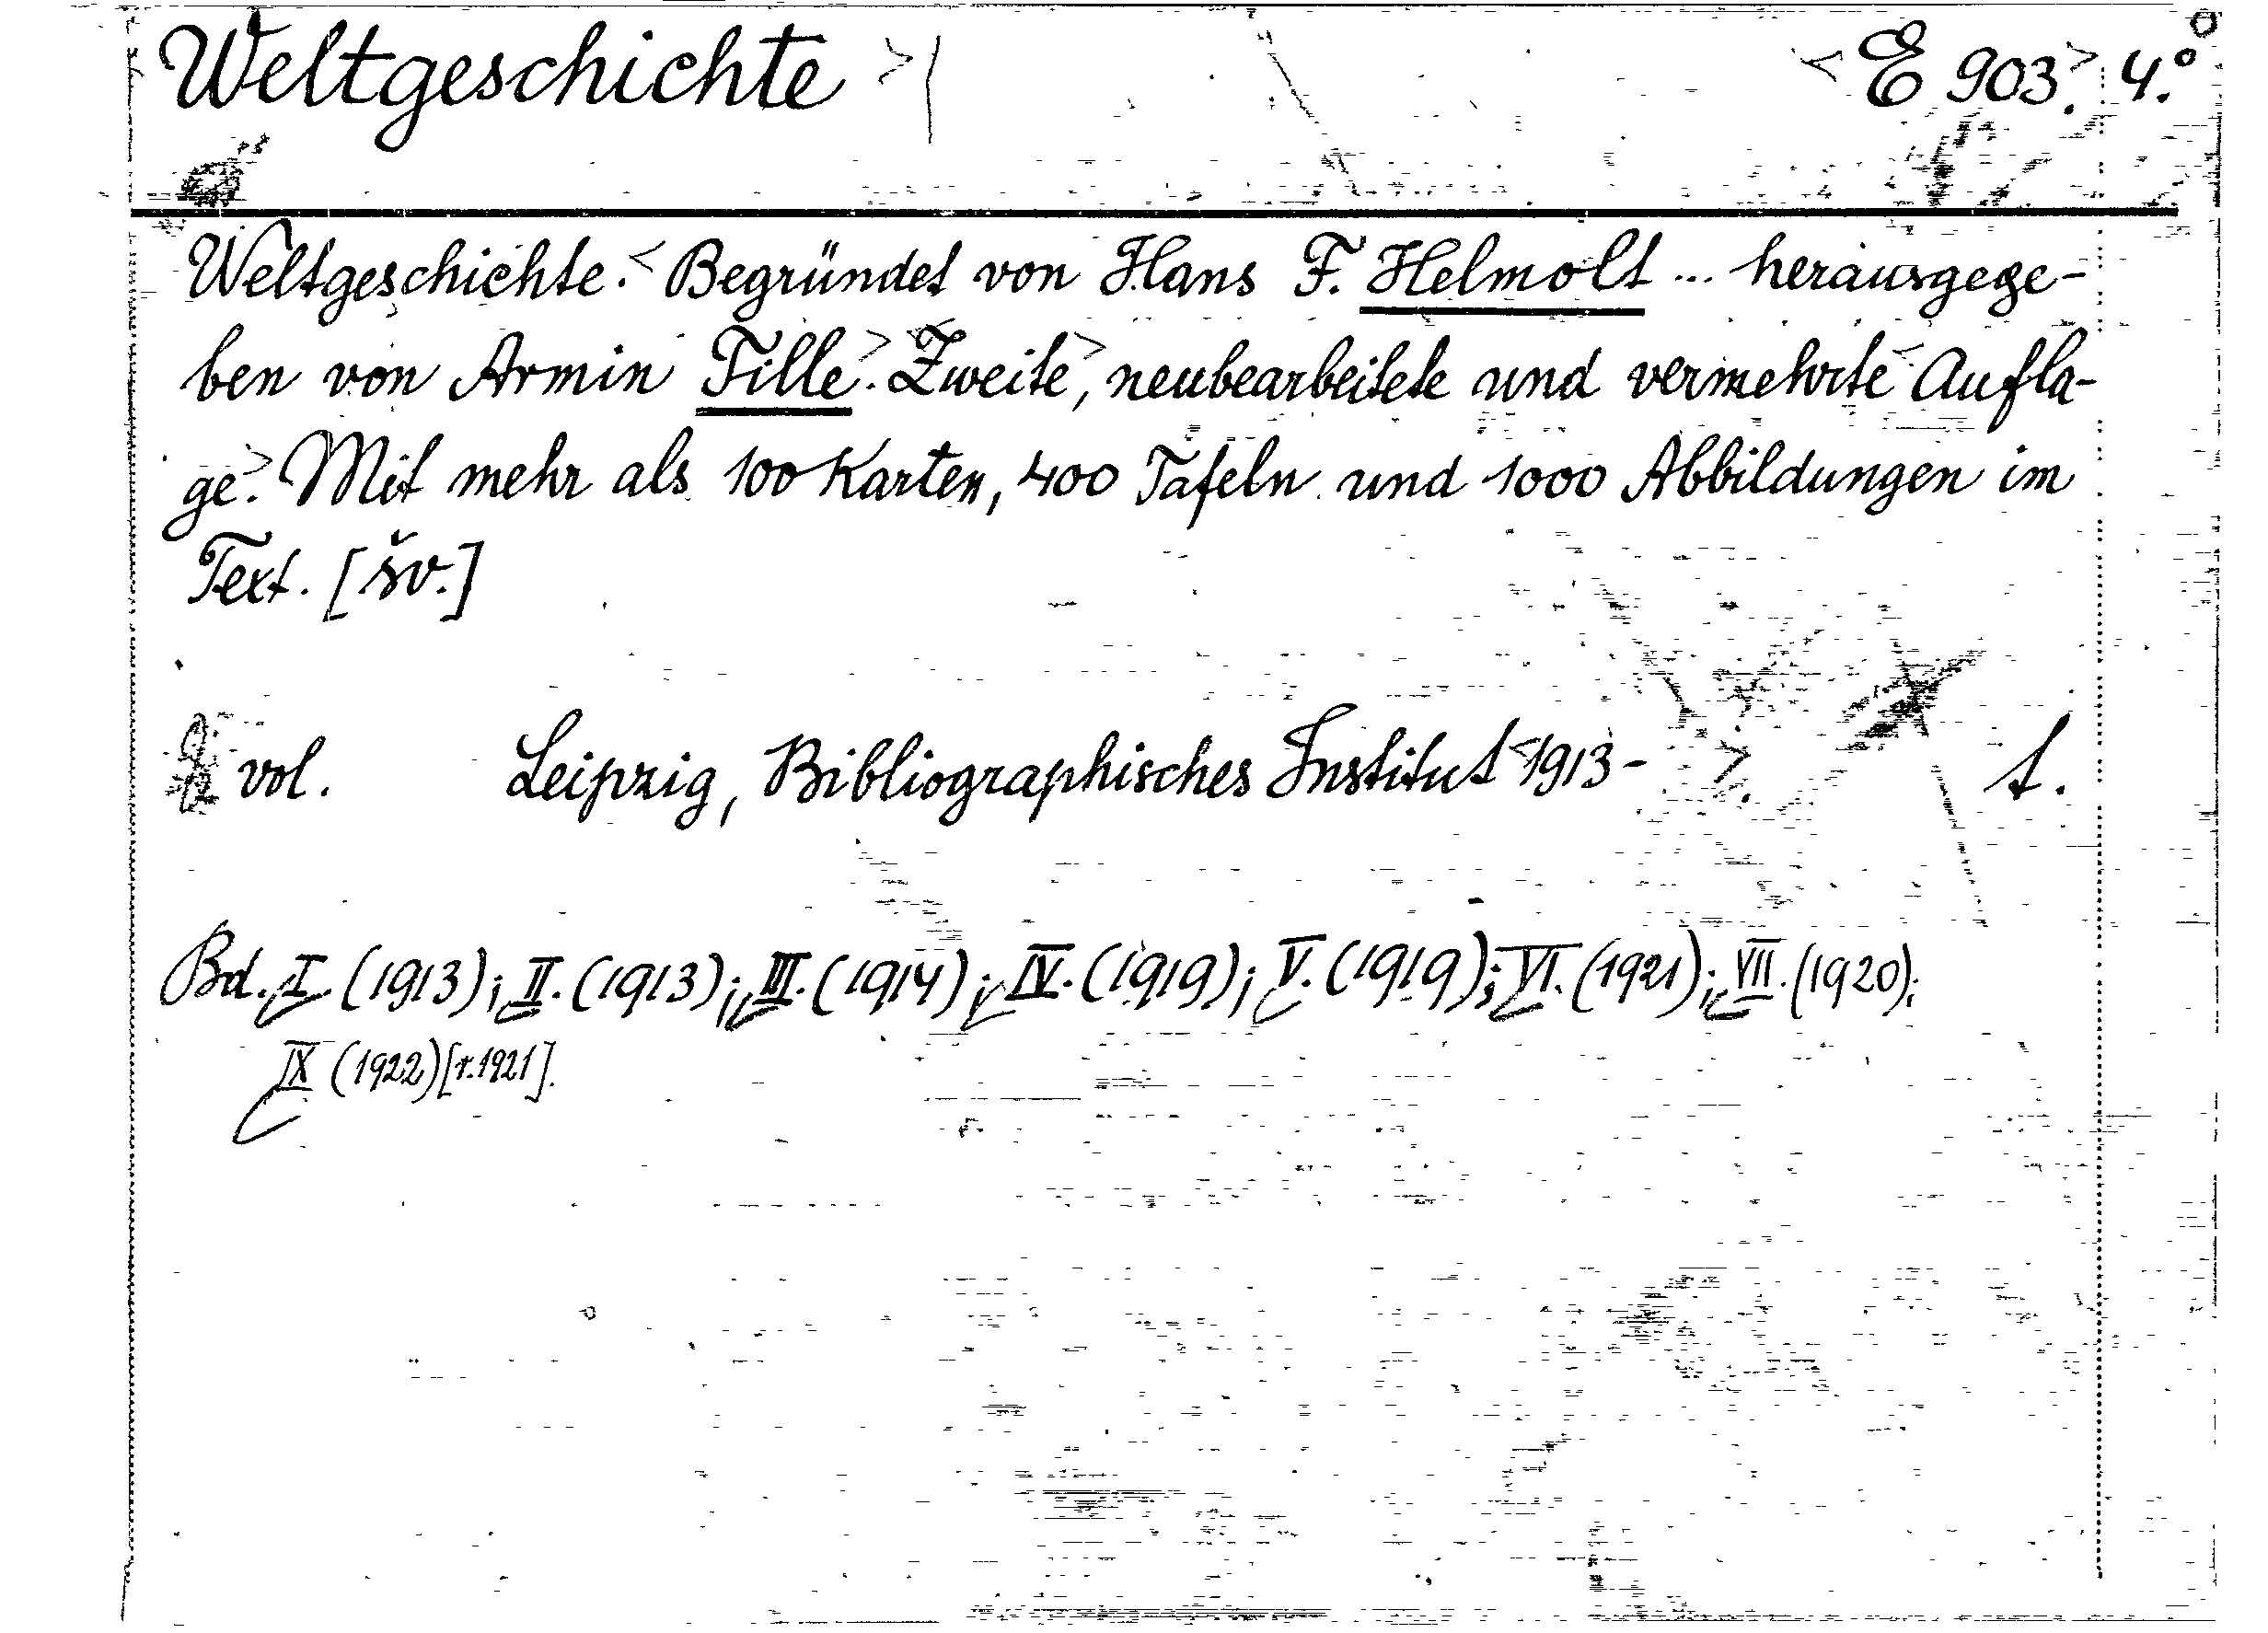 Weltgeschichte > <E 903.> 4.°
Weltgeschichte.< Begründet von Hans F. Helmolt ... herausgege-
ben von Armin Tille>. <Zweite>, neubearbeitete und vermehrte< Aufla-
ge>. Mit mehr als 100 Karten, 400 Tafeln und 1000 Abbildungen im
Text. [šv.]
vol. Leipzig, Bibliographisches Institut <1913- >. t.
Bd. I. (1913); II. (1913); III. (1914); IV. (1919); V. (1919); VI. (1921); VII. (1920);
IX (1922) [r.1921].